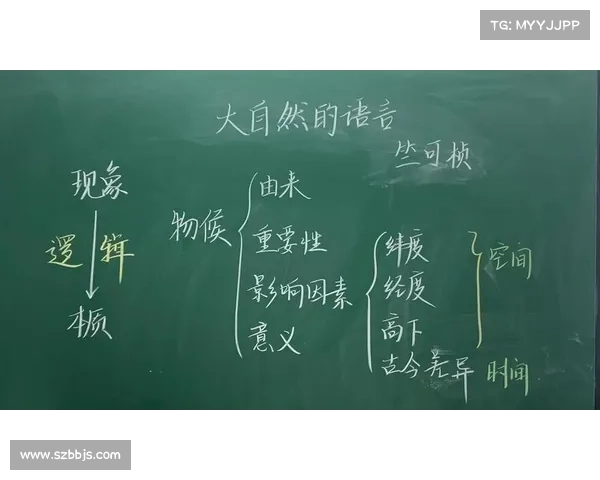 TG: MYYJJPP
大自然的语言
竺可桢
现象
逻辑
本质
物候
由来
重要性
影响因素
意义
纬度
经度
高下
古今差异
空间
时间
www.szbbjs.com